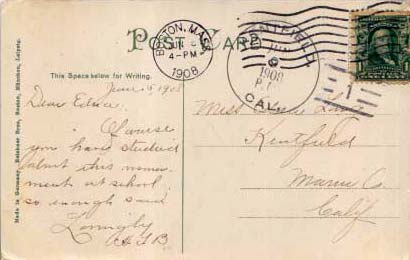 POST CARD
BOSTON, MASS.
JUN 5
4-PM
1908
KENTFIELD
JUN
1908
CAL.
1
This Space below for Writing.
June 5, 1908
Dear Edna:
Of course
you have studied
about this monu-
ment at school
so enough said
Lovingly
Miss Edna
Kentfield
Marin Co.
Calif
Made in Germany, Reichner Bros, Boston, München, Leipzig.